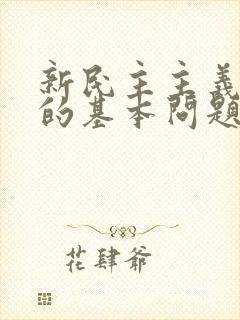 新民主主義
的基本問題
花肆爷